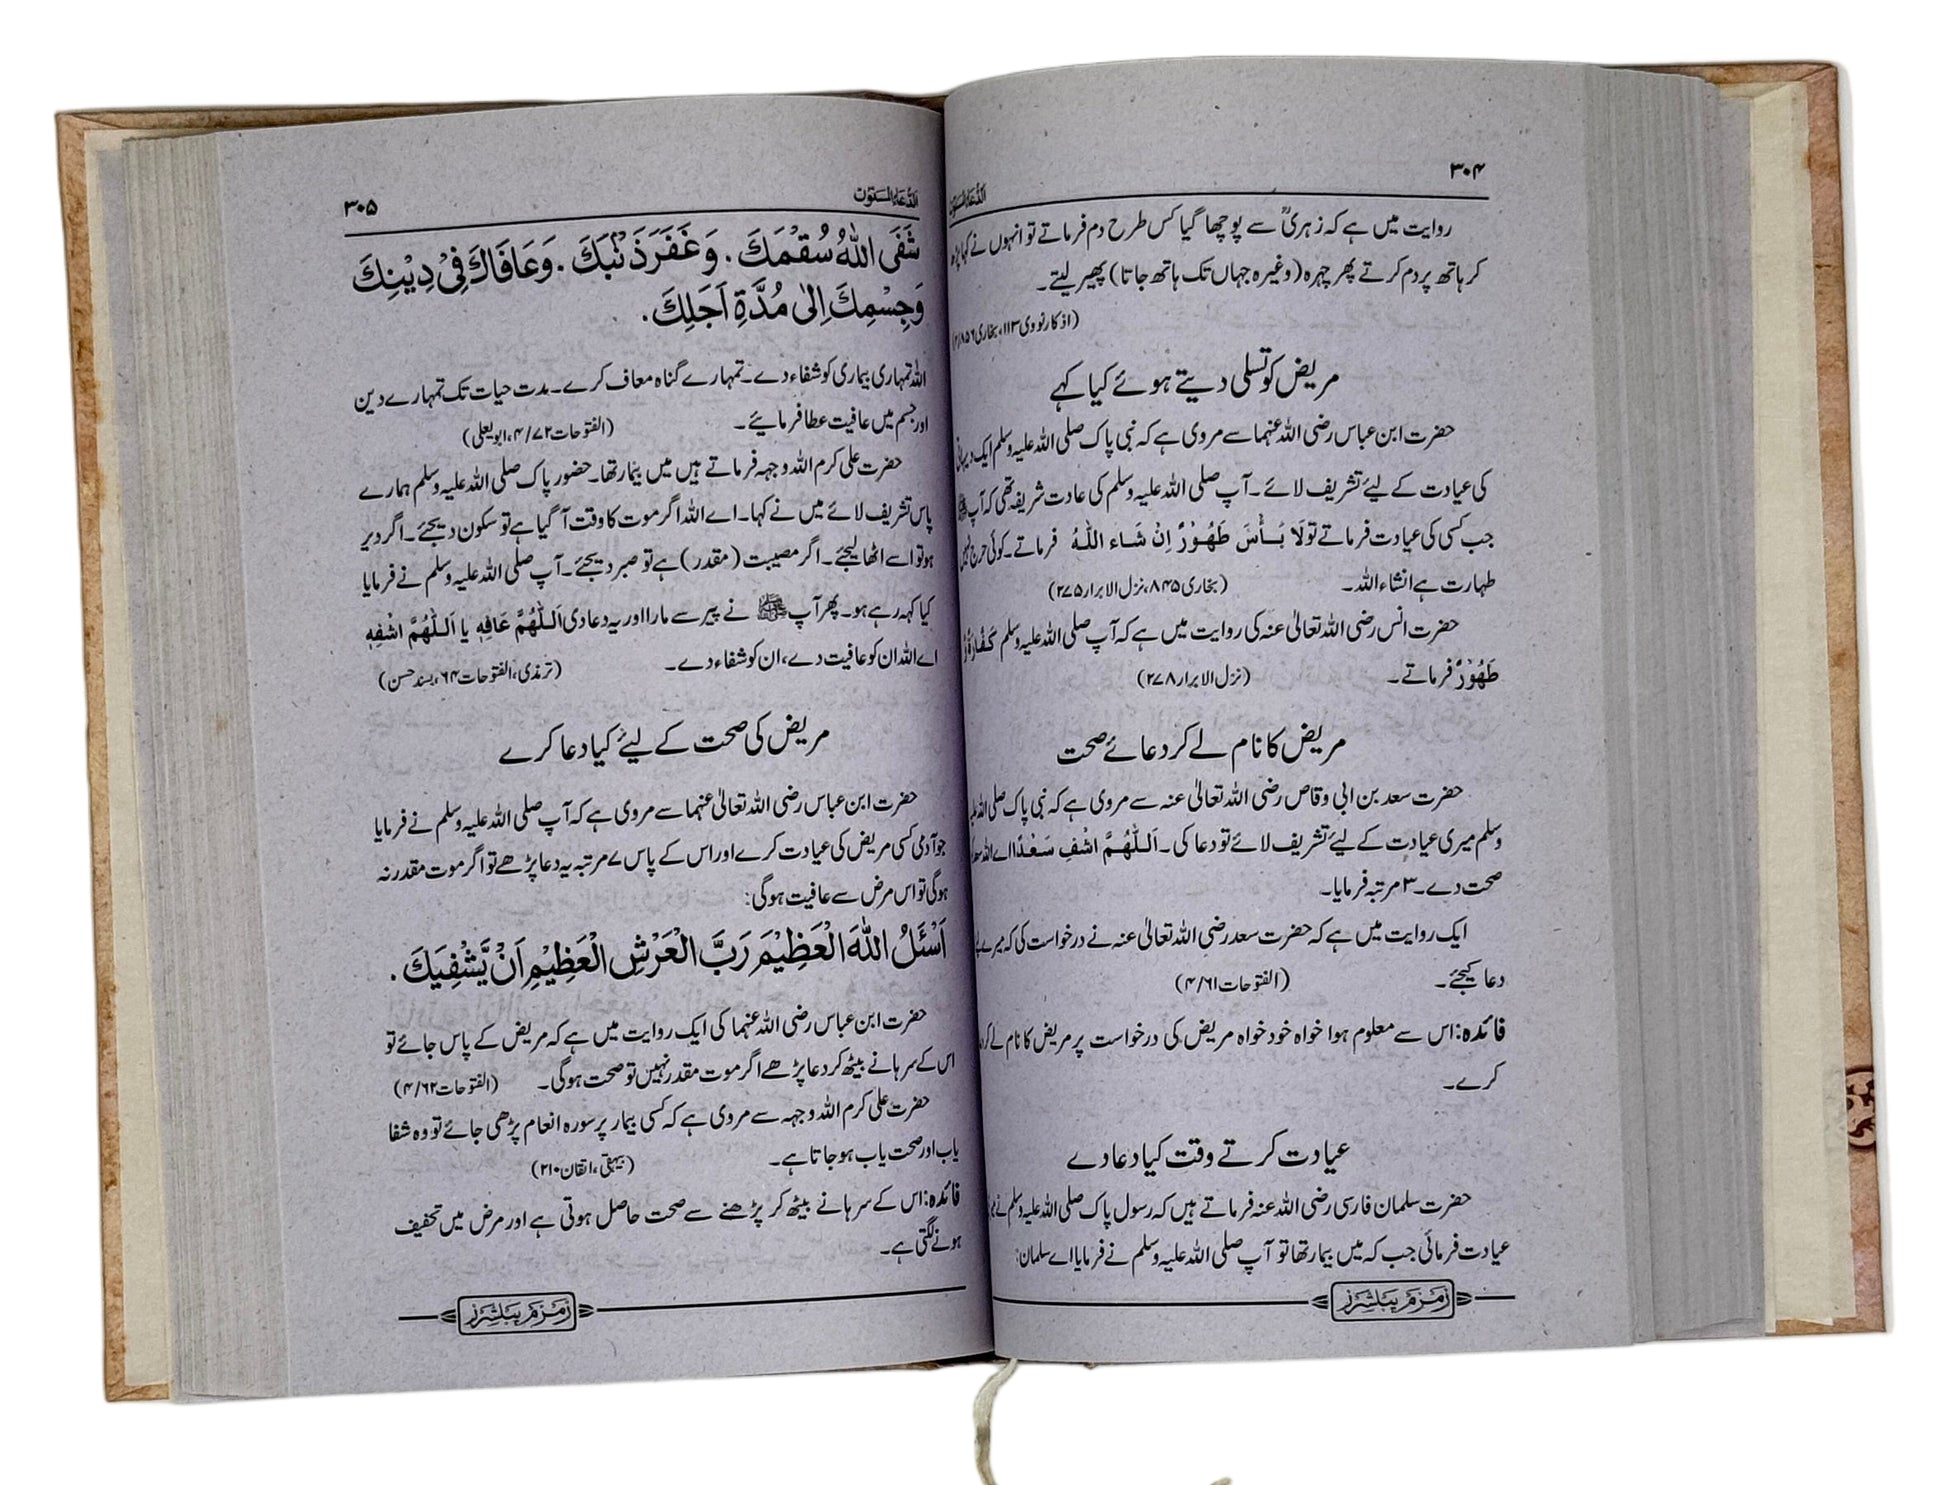 ۳۰۴
الدُّعَاءُ المَسْنُون
روایت میں ہے کہ زہریؒ سے پوچھا گیا کس طرح دم فرماتے تو انہوں نے کہا پڑھ
کر ہاتھ پر دم کرتے پھر چہرہ (وغیرہ جہاں تک ہاتھ جاتا) پھیر لیتے۔
(اذکار نووی ۱۱۳، بخاری ۲/۸۵۶)
مریض کو تسلی دیتے ہوئے کیا کہے
حضرت ابن عباس رضی اللہ عنہما سے مروی ہے کہ نبی پاک صلی اللہ علیہ وسلم ایک دیہاتی
کی عیادت کے لیئے تشریف لائے۔ آپ صلی اللہ علیہ وسلم کی عادت شریفہ تھی کہ آپ ﷺ
جب کسی کی عیادت فرماتے تو لَا بَـأْسَ طَهُـوْرٌ اِنْ شَـاء اللّٰـهُ فرماتے۔ کوئی حرج نہیں
طہارت ہے انشاء اللہ۔ (بخاری ۸۴۵، نزل الابرار ۲۷۵)
حضرت انس رضی اللہ تعالیٰ عنہ کی روایت میں ہے کہ آپ صلی اللہ علیہ وسلم كَفَّارَةٌ
طَهُوْرٌ فرماتے۔ (نزل الابرار ۲۷۸)
مریض کا نام لے کر دعائے صحت
حضرت سعد بن ابی وقاص رضی اللہ تعالیٰ عنہ سے مروی ہے کہ نبی پاک صلی اللہ علیہ
وسلم میری عیادت کے لیئے تشریف لائے تو دعا کی۔ اَللّٰهُمَّ اشْفِ سَعْدًا اے اللہ سعد
صحت دے۔ ۳ مرتبہ فرمایا۔
ایک روایت میں ہے کہ حضرت سعد رضی اللہ تعالیٰ عنہ نے درخواست کی کہ میرے
دعا کیجئے۔ (الفتوحات ۴/۶۱)
فائدہ: اس سے معلوم ہوا خواہ خود خواہ مریض کی درخواست پر مریض کا نام لے کر
کرے۔
عیادت کرتے وقت کیا دعا دے
حضرت سلمان فارسی رضی اللہ عنہ فرماتے ہیں کہ رسول پاک صلی اللہ علیہ وسلم نے
عیادت فرمائی جب کہ میں بیمار تھا تو آپ صلی اللہ علیہ وسلم نے فرمایا اے سلمان:
زمزم پبلشرز
الدُّعَاءُ المَسْنُون
۳۰۵
شَفَى اللّٰهُ سُقْمَكَ. وَغَفَرَ ذَنْبَكَ. وَعَافَاكَ فِيْ دِيْنِكَ
وَجِسْمِكَ اِلٰى مُدَّةِ اَجَلِكَ.
اللہ تمہاری بیماری کو شفاء دے۔ تمہارے گناہ معاف کرے۔ مدت حیات تک تمہارے دین
اور جسم میں عافیت عطا فرمائیے۔ (الفتوحات ۴/۷۲، ابو یعلی)
حضرت علی کرم اللہ وجہہ فرماتے ہیں میں بیمار تھا۔ حضور پاک صلی اللہ علیہ وسلم ہمارے
پاس تشریف لائے میں نے کہا۔ اے اللہ اگر موت کا وقت آ گیا ہے تو سکون دیجئے۔ اگر دیر
ہو تو اسے اٹھا لیجئے۔ اگر مصیبت (مقدر) ہے تو صبر دیجئے۔ آپ صلی اللہ علیہ وسلم نے فرمایا
کیا کہہ رہے ہو۔ پھر آپ ﷺ نے پیر سے مارا اور یہ دعا دی اَللّٰهُمَّ عَافِهٖ یا اَللّٰهُمَّ اشْفِهٖ
اے اللہ ان کو عافیت دے، ان کو شفاء دے۔ (ترمذی، الفتوحات ۶۴، بسند حسن)
مریض کی صحت کے لیئے کیا دعا کرے
حضرت ابن عباس رضی اللہ تعالیٰ عنہما سے مروی ہے کہ آپ صلی اللہ علیہ وسلم نے فرمایا
جو آدمی کسی مریض کی عیادت کرے اور اس کے پاس ۷ مرتبہ یہ دعا پڑھے تو اگر موت مقدر نہ
ہوگی تو اس مرض سے عافیت ہوگی:
اَسْئَلُ اللّٰهَ الْعَظِيْمَ رَبَّ الْعَرْشِ الْعَظِيْمِ اَنْ يَّشْفِيَكَ.
حضرت ابن عباس رضی اللہ عنہما کی ایک روایت میں ہے کہ مریض کے پاس جائے تو
اس کے سرہانے بیٹھ کر دعا پڑھے اگر موت مقدر نہیں تو صحت ہوگی۔ (الفتوحات ۴/۶۲)
حضرت علی کرم اللہ وجہہ سے مروی ہے کہ کسی بیمار پر سورہ انعام پڑھی جائے تو وہ شفا
یاب اور صحت یاب ہو جاتا ہے۔ (بیہقی، اتقان ۲۱۰)
فائدہ: اس کے سرہانے بیٹھ کر پڑھنے سے صحت حاصل ہوتی ہے اور مرض میں تخفیف
ہونے لگتی ہے۔
زمزم پبلشرز